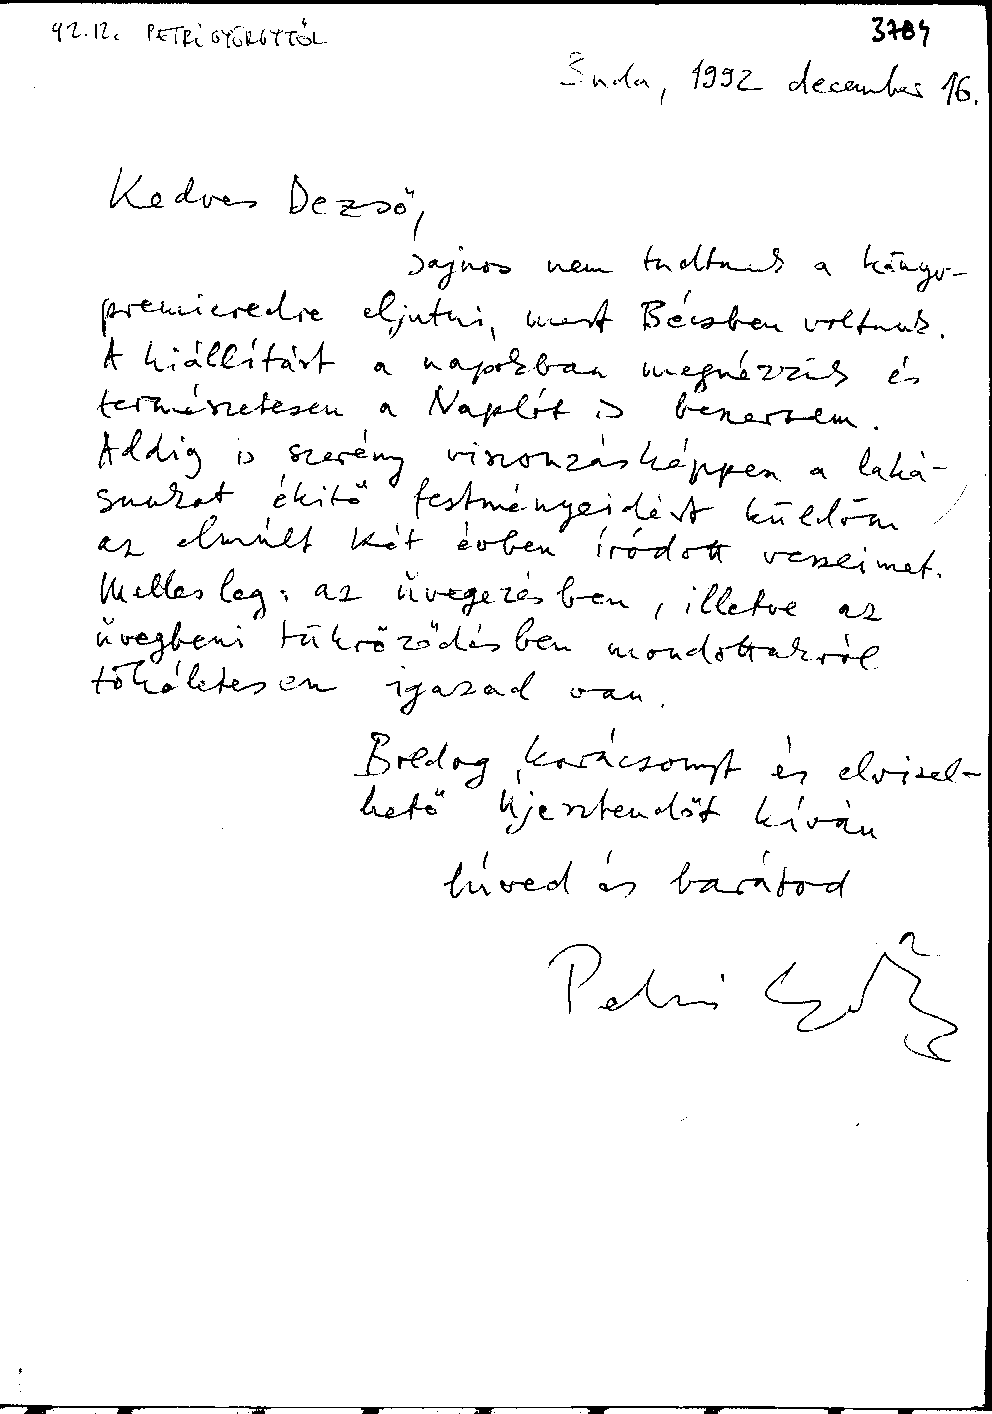 92.12. PETRI GYÖRGYTŐL
3784
Buda, 1992 december 16.
Kedves Dezső,
sajnos nem tudtunk a könyv-
premieredre eljutni, mert Bécsben voltunk.
A kiállítást a napokban megnézzük és
természetesen a Naplót is beszerzem.
Addig is szerény viszonzásképpen a laká-
sunkat ékítő festményeidért küldöm
az elmúlt két évben íródott verseimet.
Mellesleg: az üvegezésben, illetve az
üvegbeni tükröződésben mondottakról
tökéletesen igazad van.
Boldog karácsonyt és elvisel-
hető újesztendőt kíván
híved és barátod
Petri György